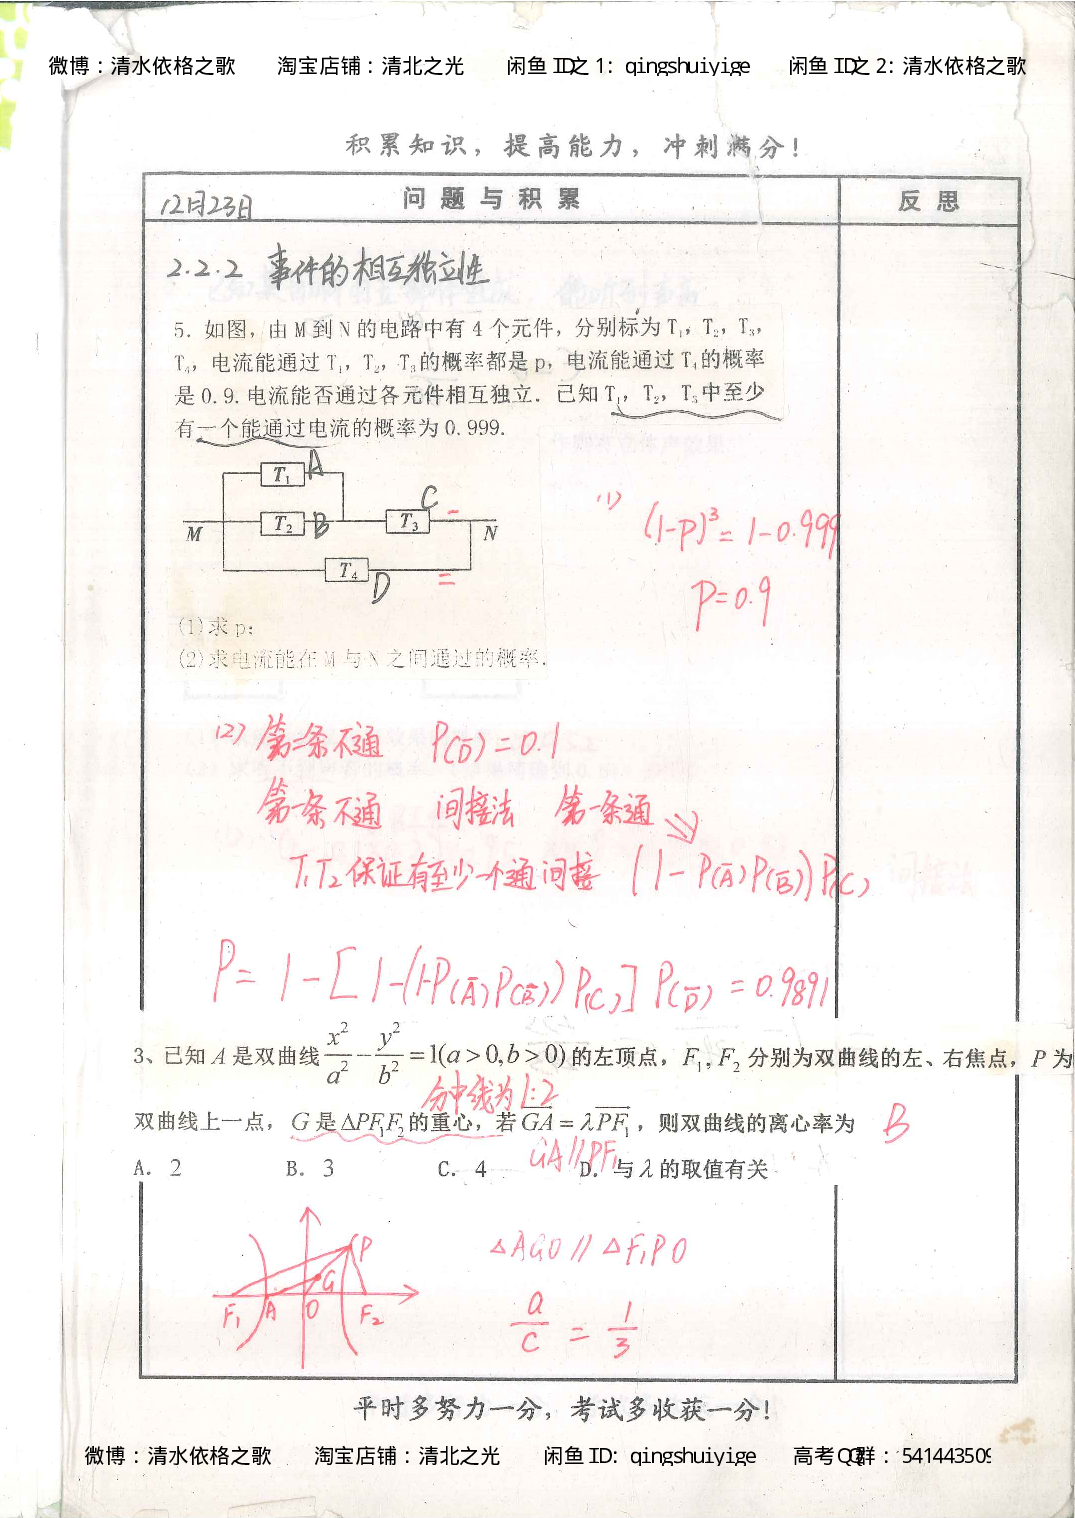 微博：清水依格之歌 淘宝店铺：清北之光 闲鱼 ID之 1: qingshuiyige 闲鱼 ID之 2: 清水依格之歌
积累知识，提高能力，冲刺满分！
12月23日 问题与积累 反思
2.2.2 事件的相互独立性
5. 如图，由 M 到 N 的电路中有 4 个元件，分别标为 T₁，T₂，T₃，
T₄，电流能通过 T₁，T₂，T₃的概率都是 p，电流能通过 T₄的概率
是 0.9.电流能否通过各元件相互独立．已知 T₁，T₂，T₃中至少
有一个能通过电流的概率为 0.999.
T₁ A
M T₂ B T₃ C N
T₄ D
(1) (1-P)³=1-0.999
P=0.9
(1)求 p;
(2)求电流能在 M 与 N 之间通过的概率.
(2) 第二条不通 P(D̅)=0.1
第一条不通 间接法 第一条通
T₁T₂保证有至少一个通 间接 (1-P(A̅)P(B̅))P(C)
P=1-[1-(1-P(A̅)P(B̅))P(C)]P(D̅)=0.9891
3、已知 A 是双曲线 x²/a² - y²/b² =1(a>0,b>0)的左顶点，F₁,F₂ 分别为双曲线的左、右焦点，P 为
分中线为1:2
双曲线上一点，G 是 ΔPF₁F₂的重心，若 GA = λPF₁，则双曲线的离心率为 B
GA//PF₁
A. 2 B. 3 C. 4 D. 与 λ 的取值有关
P
G
F₁ A O F₂
△AGO // △F₁PO
a/c = 1/3
平时多努力一分，考试多收获一分！
微博：清水依格之歌 淘宝店铺：清北之光 闲鱼 ID: qingshuiyige 高考QQ群：541443509